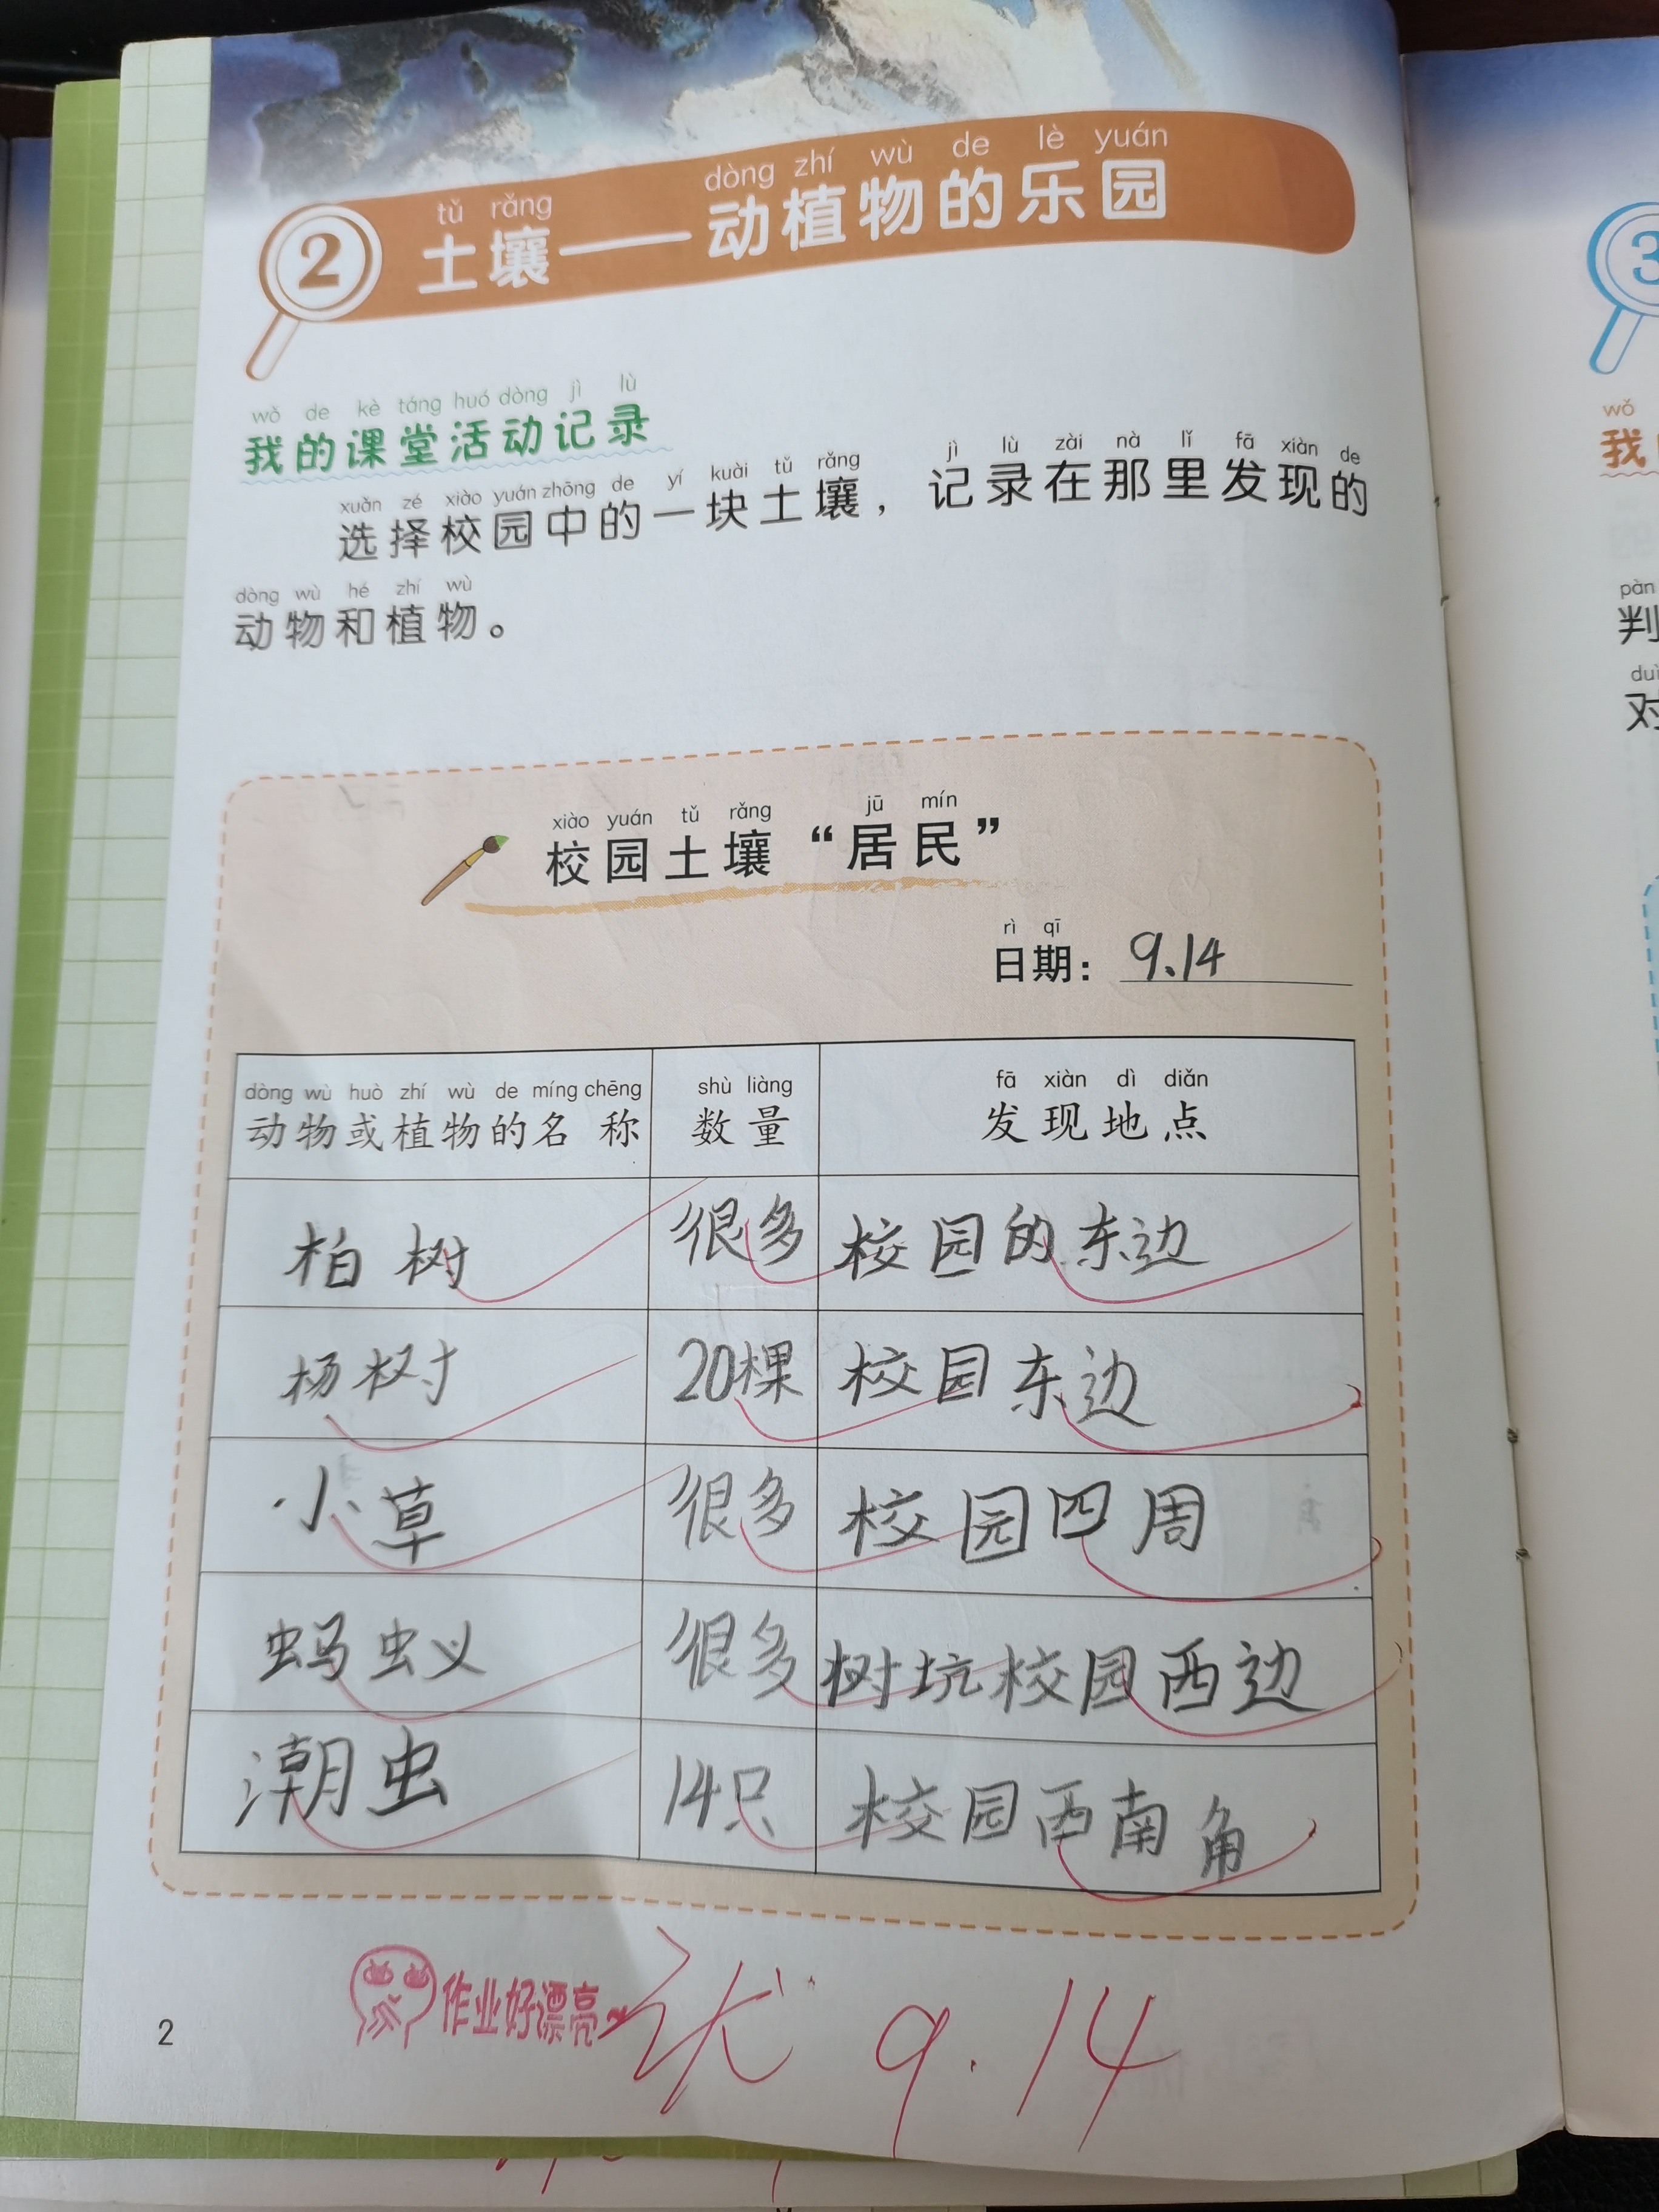 tǔ rǎng dòng zhí wù de lè yuán
2 土壤——动植物的乐园
wǒ de kè táng huó dòng jì lù
我的课堂活动记录
xuǎn zé xiào yuán zhōng de yí kuài tǔ rǎng jì lù zài nà lǐ fā xiàn de
选择校园中的一块土壤，记录在那里发现的
dòng wù hé zhí wù
动物和植物。
xiào yuán tǔ rǎng jū mín
校园土壤“居民”
rì qī
日期：9.14
dòng wù huò zhí wù de míng chēng shù liàng fā xiàn dì diǎn
动物或植物的名称 数量 发现地点
柏树 很多 校园的东边
杨树 20棵 校园东边
小草 很多 校园四周
蚂蚁 很多 树坑校园西边
潮虫 14只 校园西南角
作业好漂亮 优 9.14
2
3
wǒ
我
pàn
判
duì
对